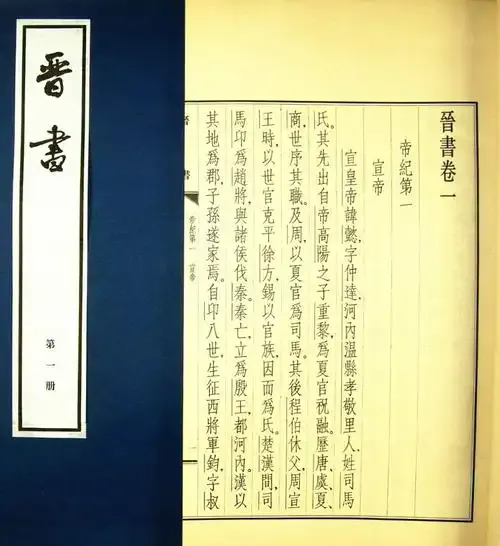 晋書
第一册
晉書卷一
帝紀第一
宣帝
宣皇帝諱懿,字仲達,河內温縣孝敬里人,姓司馬
氏。其先出自帝高陽之子重黎,爲夏官祝融。歷唐、虞、夏、
商,世序其職。及周,以夏官爲司馬。其後程伯休父,周宣
王時,以世官克平徐方,錫以官族,因而爲氏。楚漢間,司
馬卬爲趙將,與諸侯伐秦。秦亡,立爲殷王,都河內。漢以
其地爲郡,子孫遂家焉。自卬八世,生征西將軍鈞,字叔
帝紀第一 宣帝